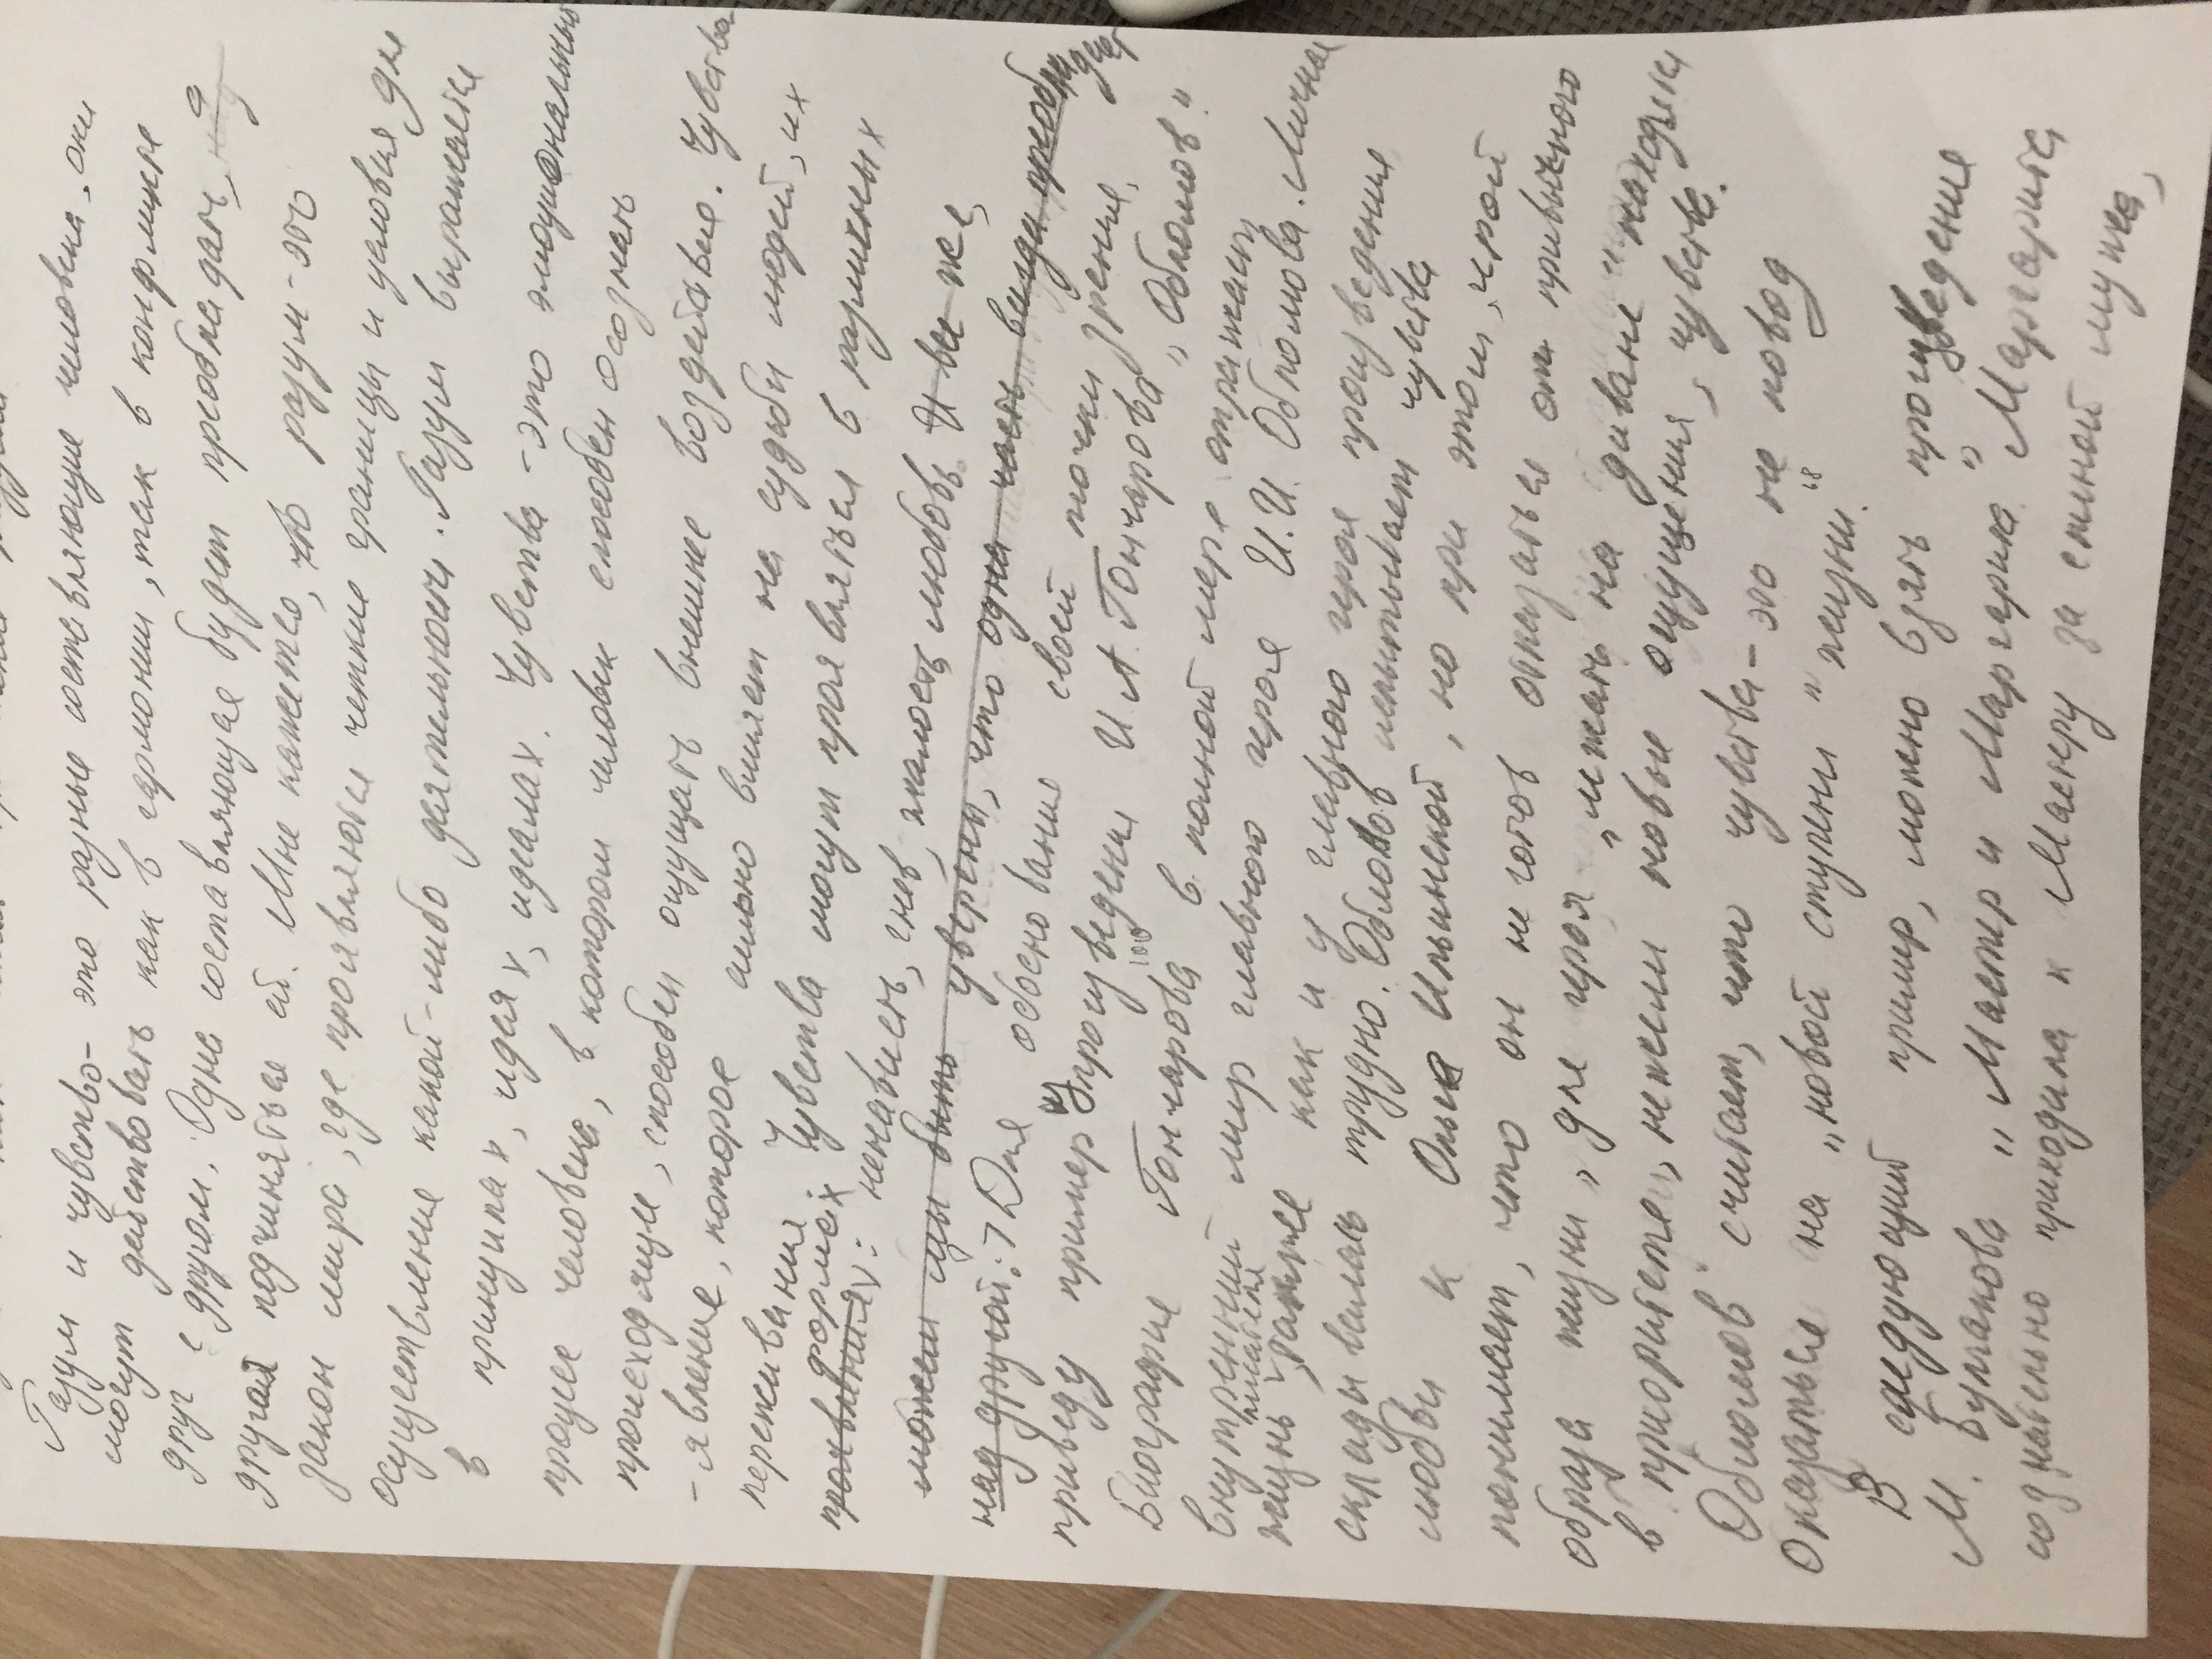 Разум и чувство- это разные составляющие человека. они
могут действовать как в гармонии, так в конфликте
друг с другом. Одна составляющая будет преобладать, а
другая подчиняться ей. Мне кажется, что разум - это
закон мира, где проявляются четкие границы и условия для
осуществления какой-либо деятельности. Разум выражается
в принципах, идеях, идеалах. Чувства - это эмоциональный
процесс человека, в котором человек способен осознать
происходящие, способен ощущать внешние воздействие. Чувства
- явление, которое сильно влияет на судьбы людей, их
переживания Чувства могут проявляться в различных
формах: ненависть, гнев, жалость, любовь. И все же,
можем мы быть уверены, что одна часть всегда преобладает
над другой:? Для обоснования своей точки зрения,
приведу пример из произведения И А. Гончарова „Обломов".
Биография Гончарова в полной мере отражает
внутренний мир главного героя И.И. Обломова. Личная
жизнь писателя, также как и у главного героя произведения
складывалась трудно. Обломов испытывает чувства
любви к Ольге Ильинской, но при этом, герой
понимает, что он не готов отказаться от привычного
образа жизни, для героя „лежать на диване" находится
в приоритете, нежели новые ощущения, чувства.
Обломов считает, что чувства - это не повод
оказаться на „новой ступени" жизни.
В следующий пример, можно взять произведение
М. Булгакова „Мастер и Маргарита" Маргарита
сознательно приходила к Мастеру за спиной мужа,